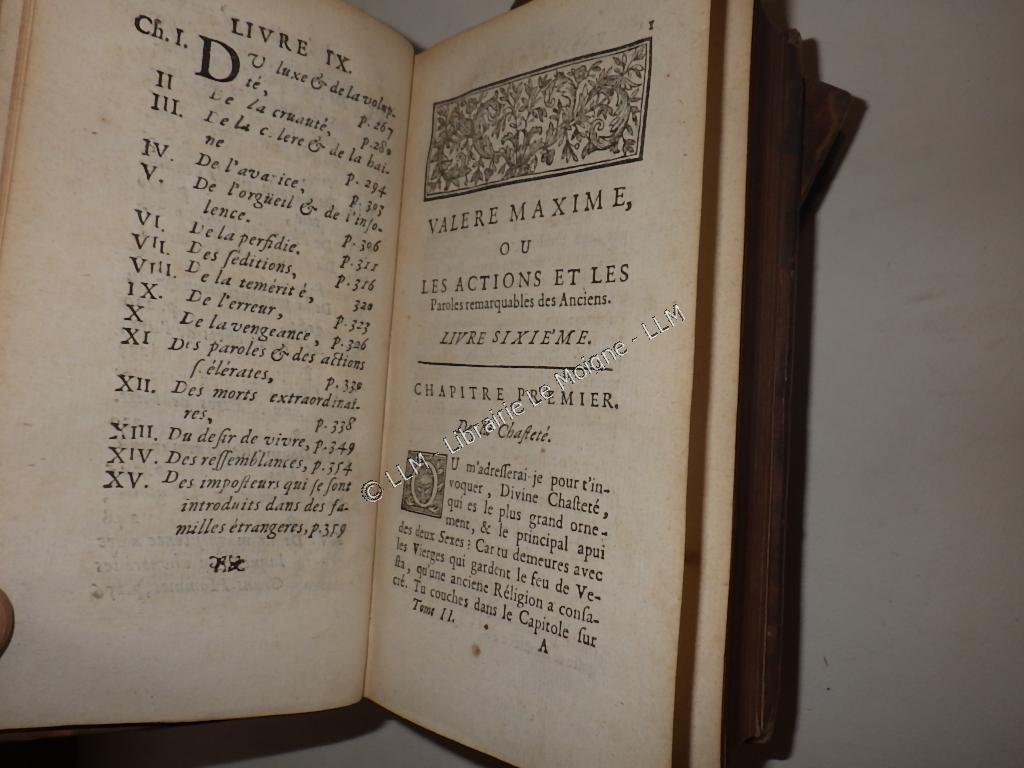 LIVRE IX.
Ch. I. DU luxe & de la volup-
té, p. 267
II De la cruauté, p. 280
III. De la colere & de la hai-
ne p. 294
IV. De l'avarice, p. 303
V. De l'orgüeil & de l'inso-
lence. p. 306
VI. De la perfidie. p. 311
VII. Des séditions, p. 316
VIII. De la temérité, 320
IX. De l'erreur, p. 323
X De la vengeance, p. 326
XI Des paroles & des actions
scélerates, p. 330
XII. Des morts extraordinai-
res, p. 338
XIII. Du desir de vivre, p. 349
XIV. Des ressemblances, p. 354
XV. Des imposteurs qui se sont
introduits dans des fa-
milles étrangeres, p. 359
1
VALERE MAXIME,
OU
LES ACTIONS ET LES
Paroles remarquables des Anciens.
LIVRE SIXIE'ME.
CHAPITRE PREMIER.
De la Chasteté.
OU m'adresserai-je pour t'in-
voquer, Divine Chasteté,
qui es le plus grand orne-
ment, & le principal apui
des deux Sexes: Car tu demeures avec
les Vierges qui gardent le feu de Ve-
sta, qu'une anciene Réligion a consa-
cré. Tu couches dans le Capitole sur
Tome II. A
© LLM - Librairie Le Moigne - LLM